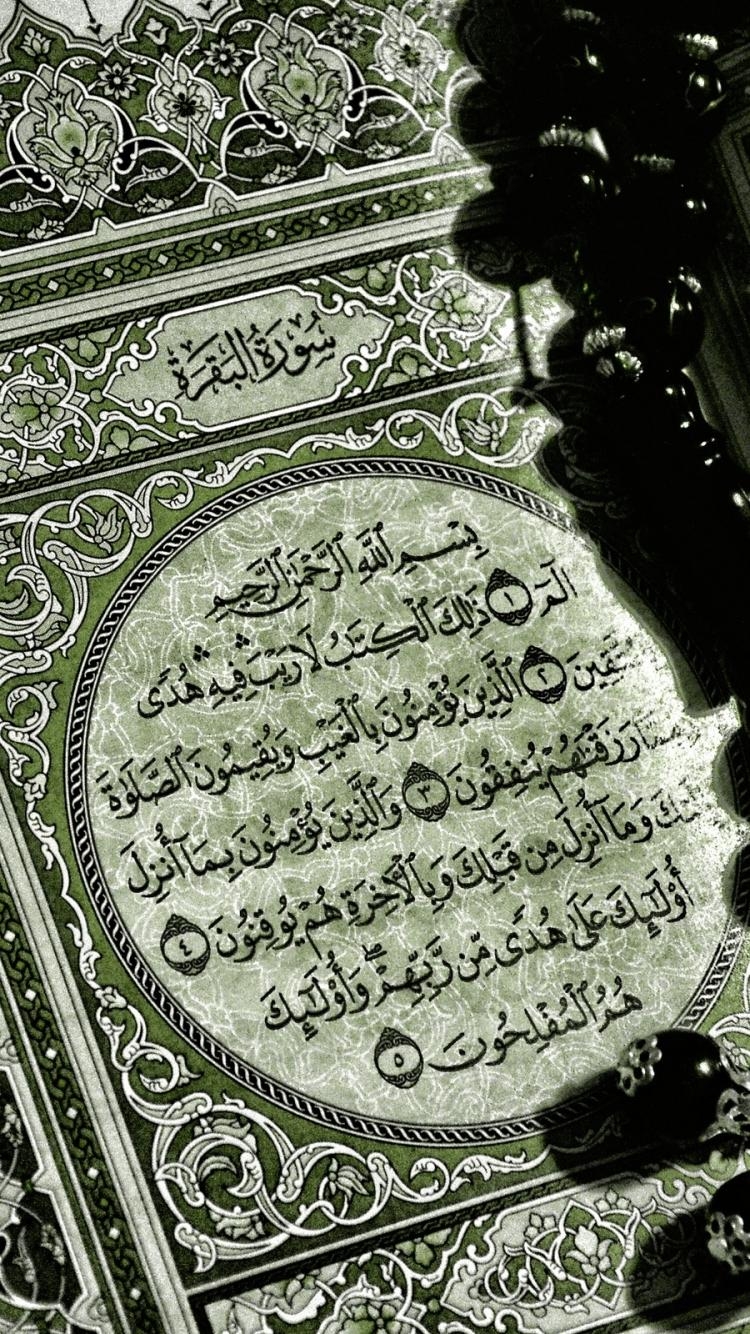 سُورَةُ البَقَرَةِ
بِسْمِ ٱللَّهِ ٱلرَّحْمَٰنِ ٱلرَّحِيمِ
الٓمٓ ١ ذَٰلِكَ ٱلْكِتَٰبُ لَا رَيْبَ ۛ فِيهِ ۛ هُدًى
٢ ٱلَّذِينَ يُؤْمِنُونَ بِٱلْغَيْبِ وَيُقِيمُونَ ٱلصَّلَوٰةَ
رَزَقْنَٰهُمْ يُنفِقُونَ ٣ وَٱلَّذِينَ يُؤْمِنُونَ بِمَآ أُنزِلَ
وَمَآ أُنزِلَ مِن قَبْلِكَ وَبِٱلْأَخِرَةِ هُمْ يُوقِنُونَ ٤
أُو۟لَٰٓئِكَ عَلَىٰ هُدًى مِّن رَّبِّهِمْ ۖ وَأُو۟لَٰٓئِكَ
هُمُ ٱلْمُفْلِحُونَ ٥